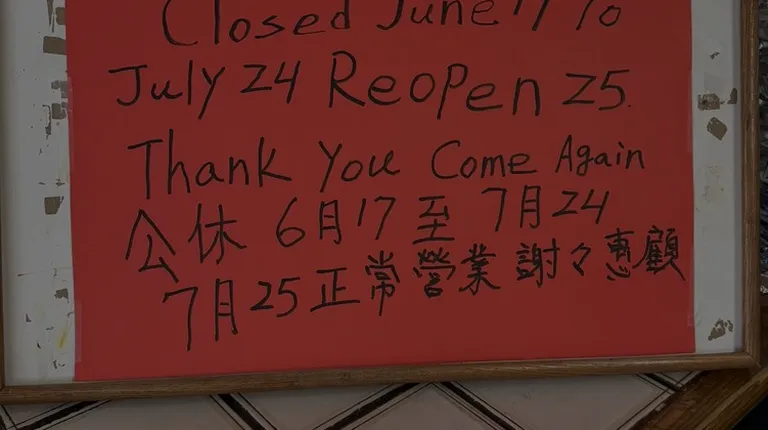 Closed June 17 to
July 24 Reopen 25.
Thank You Come Again
公休 6月17至 7月24
7月25正常營業 謝々惠顧